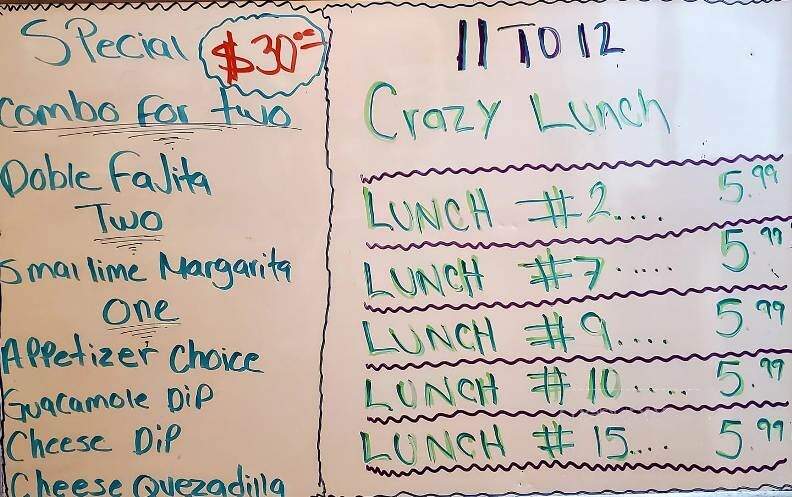 Special $30.00
Combo for two
Doble Fajita
Two
Small lime Margarita
One
Appetizer Choice
Guacamole Dip
Cheese Dip
Cheese Quezadilla
11 TO 12
Crazy Lunch
LUNCH #2.... 5.99
LUNCH #7..... 5.99
LUNCH #9.... 5.99
LUNCH #10..... 5.99
LUNCH #15.... 5.99